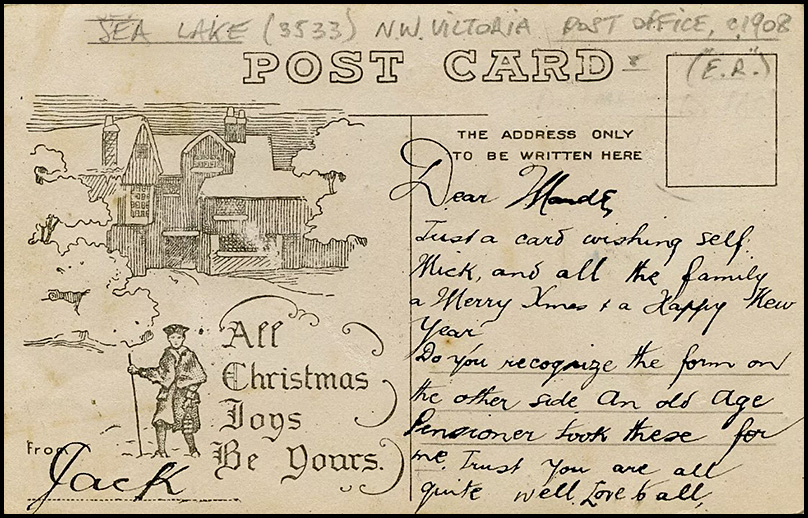 SEA LAKE (3533) N.W. VICTORIA POST OFFICE, c.1908
("E.R.")
POST CARD
THE ADDRESS ONLY
TO BE WRITTEN HERE
Dear Maude,
Just a card wishing self
Mick, and all the family
a Merry Xmas & a Happy New
Year
Do you recognize the form on
the other side An old Age
Pensioner took these for
me. Trust You are all
quite well. Love to all,
All
Christmas
Joys
Be Yours.
From
Jack